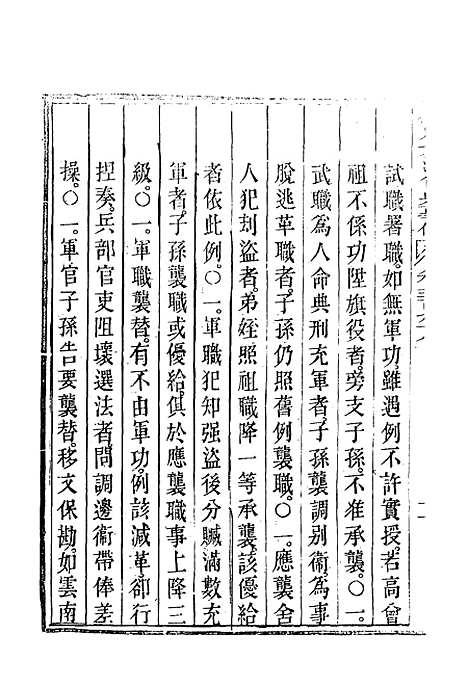 試職署職。如無軍功。雖遇例不許實授。若高曾
祖不係功陞旗役者。旁支子孫。不准承襲。〇一。
武職爲人命典刑充軍者。子孫襲調别衞。爲事
脫逃革職者。子孫仍照舊例襲職。〇一。應襲舍
人犯刦盜者。弟姪照祖職降一等承襲。該優給
者依此例。〇一。軍職犯知强盜後分贓滿數充
軍者。子孫襲職或優給。俱於應襲職事上降三
級。〇一。軍職襲替。有不由軍功。例該減革。卻行
捏奏。兵部官吏阻壞選法者。問調邊衞帶俸差
操。〇一。軍官子孫告要襲替。移文保勘。如雲南